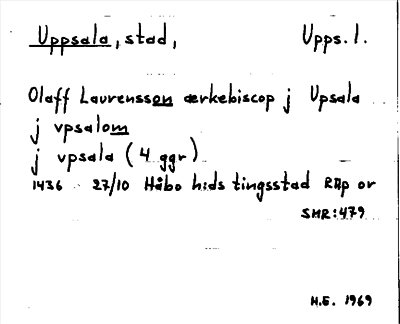 Uppsala, stad, Upps. l.
Olaff Laurensson ærkebiscop j Upsala
j vpsalom
j vpsala (4 ggr)
1436 27/10 Håbo h:ds tingsstad RAp or
SMR:479
H.E. 1969